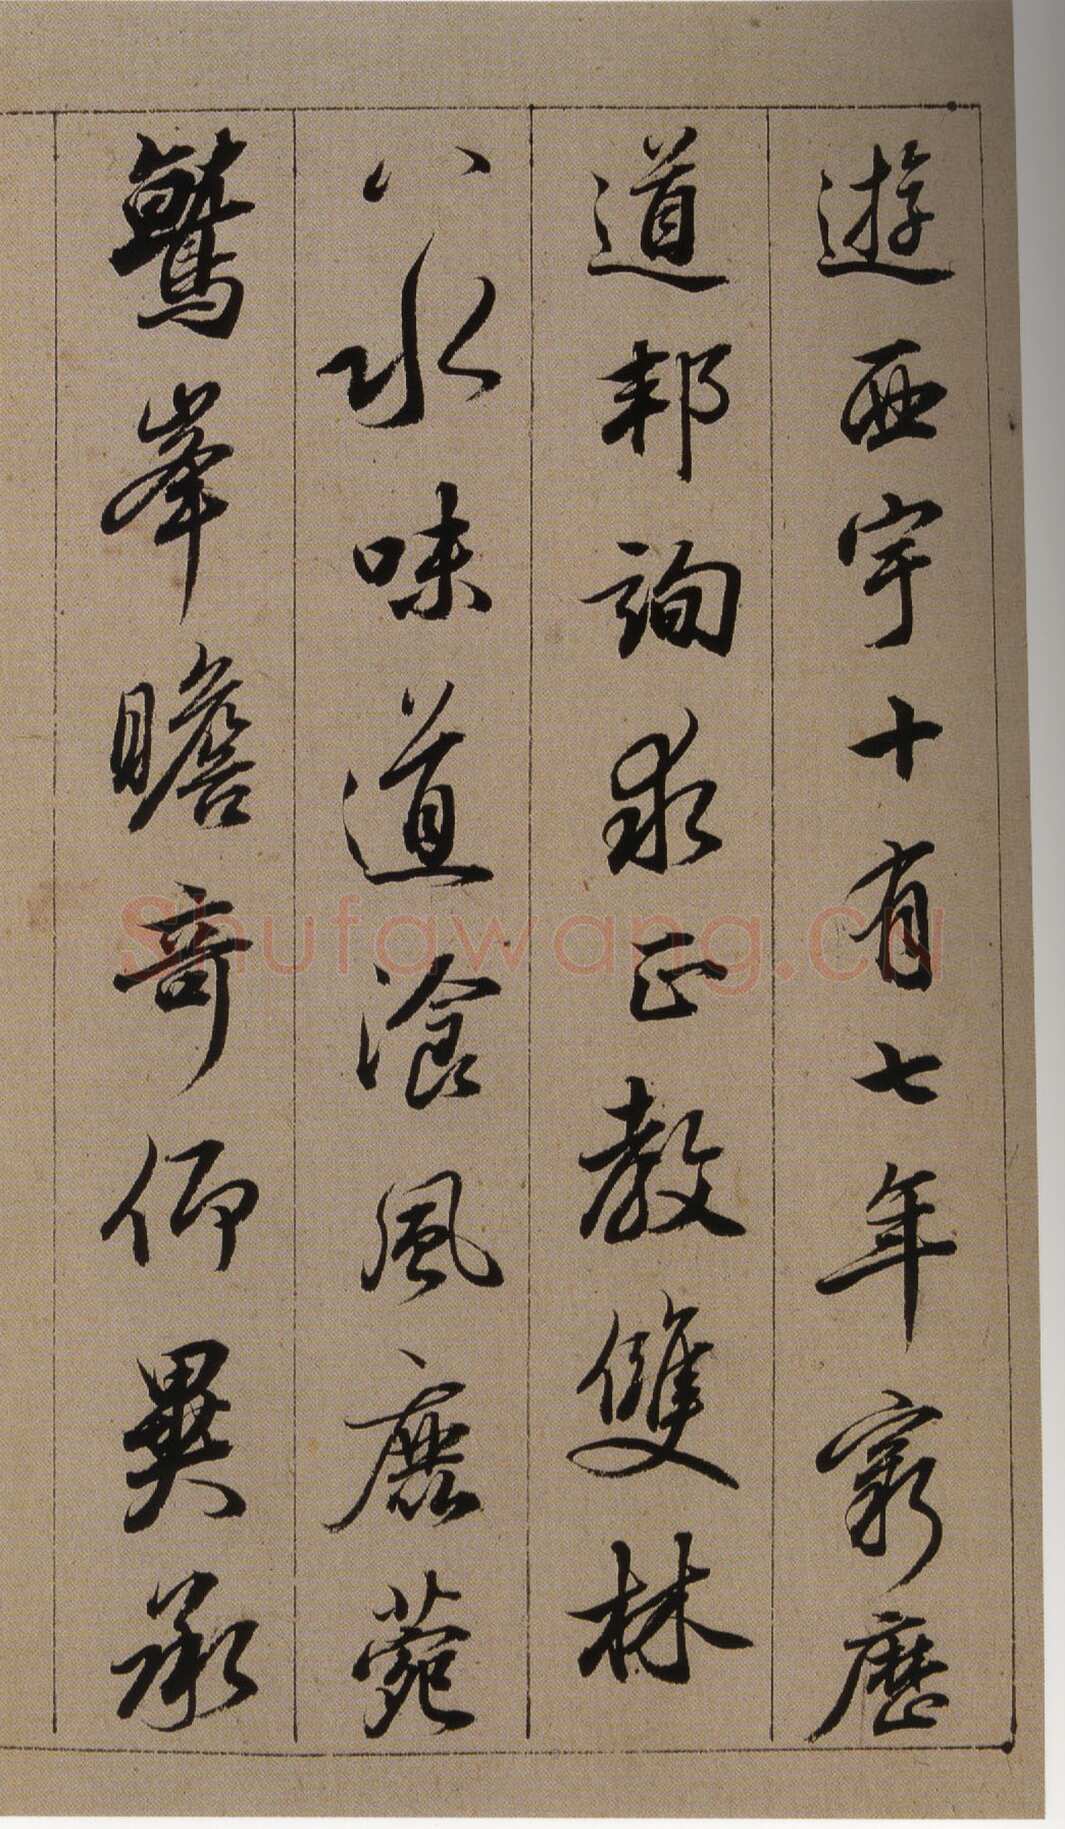 遊西宇十有七年窮歷
道邦詢求正教雙林
八水味道飡風鹿菀
鷲峯瞻奇仰異承
shufawang.cn